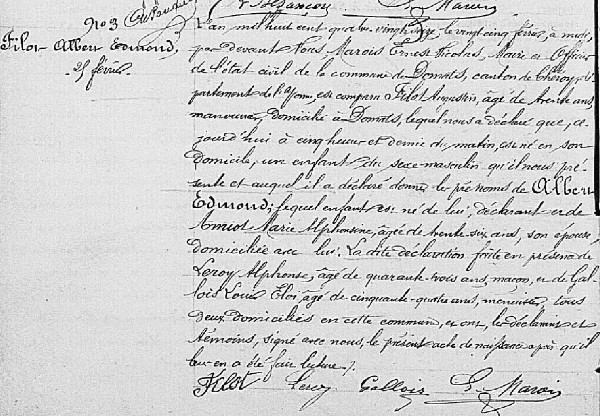 Besançon E. Marois
No 3
Filot Albert Edmond,
25 février
L'an mil huit cent quatre vingt seize le vingt cinq février, à midi,
par devant Nous Marois Ernest Nicolas, Maire et Officier
de l'état civil de la commune de Domats, canton de Chéroy, dé-
partement de l'Yonne, est comparu Filot Augustin, âgé de trente ans,
manouvrier, domicilié à Domats, lequel nous a déclaré que, ce-
jourd'hui à cinq heures et demie du matin, est né en son
domicile, un enfant du sexe masculin qu'il nous pré-
sente et auquel il a déclaré donner les prénoms de Albert
Edmond; lequel enfant est né de lui, déclarant et de
Amiot Marie Alphonsine, âgée de trente six ans, son épouse,
domiciliée avec lui. La dite déclaration faite en présence de
Leroy Alphonse, âgé de quarante-trois ans, maçon, et de Gal-
lois Louis Eloi, âgé de cinquante-quatre ans, menuisier, tous
deux domiciliés en cette commune, et ont, les déclarant et
témoins, signé avec nous, le présent acte de naissance après qu'il
leur en a été fait lecture ./.
Filot Leroy Gallois E. Marois